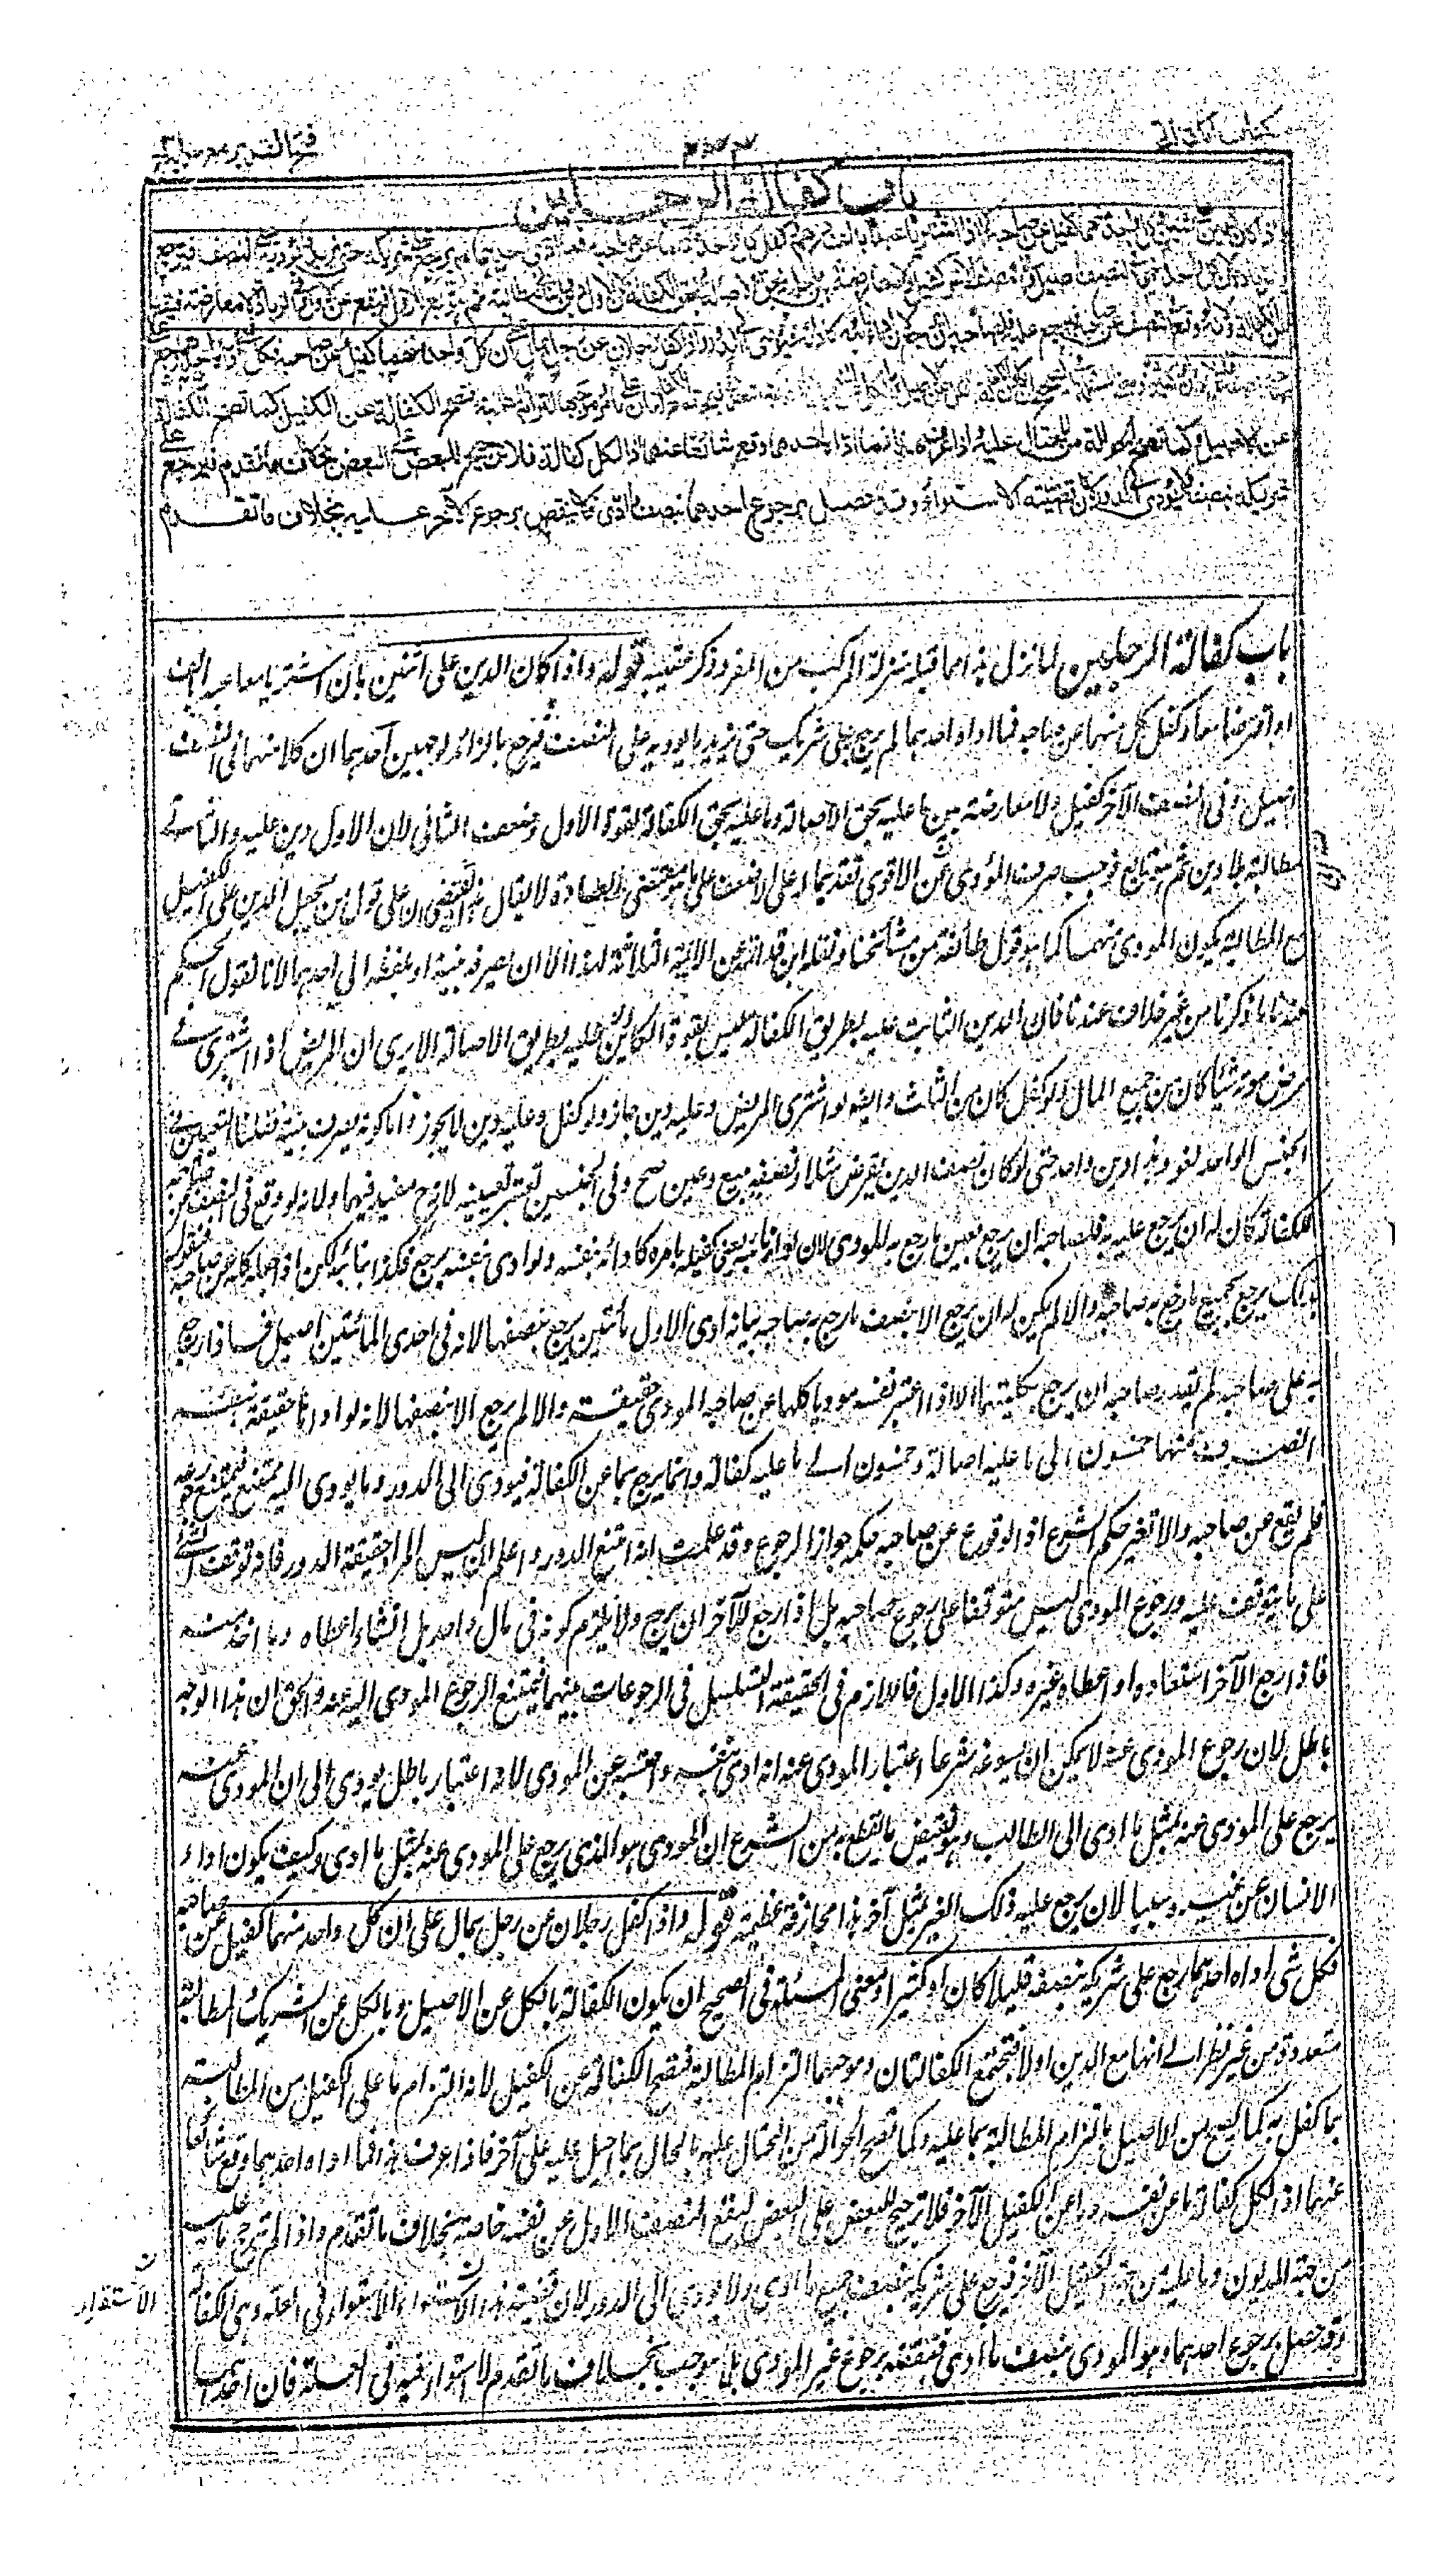 فتح القدير مع هدايه
باب كفالة الرجلين
واذا كان الدين على اثنين وكل واحد منهما كفيل عن صاحبه كما اذا اشتريا عبدا بالف درهم وكفل كل واحد منهما عن صاحبه فما ادى احدهما لم يرجع على شريكه حتى يزيد ما يؤديه على النصف فيرجع
بالزيادة لان كل واحد منهما في النصف اصيل وفي النصف الآخر كفيل ولا معارضة بين ما عليه بحق الاصالة وبحق الكفالة لان الاول دين والثاني مطالبة ثم هو تابع للاول فيقع عن الاول وفي الزيادة لا معارضة فيقع
واذا كفل رجلان عن رجل بمال على ان كل واحد منهما كفيل عن صاحبه فكل شيء اداه احدهما رجع على
عن الاصيل وكما تصح الحوالة من المحتال عليه واذا عرف هذا فما اداه احدهما وقع شائعا عنهما اذ الكل كفالة فلا ترجيح للبعض على البعض بخلاف ما تقدم فيرجع على
شريكه بنصفه ولا يؤدي الى الدور لان قضيته الاستواء وقد حصل برجوع احدهما بنصف ما ادى فلا ينتقض برجوع الآخر عليه بخلاف ما تقدم
باب كفالة الرجلين لما نزل هذا مما قبله منزلة المركب من المفرد ذكر عقيبه قوله واذا كان الدين على اثنين بان اشتريا معا عبدا بالف
او اقترضا معا وكفل كل منهما عن صاحبه فما اداه احدهما لم يرجع على شريكه حتى يزيد ما يؤديه على النصف فيرجع بالزائد لوجهين احدهما ان كلا منهما في النصف
اصيل وفي النصف الآخر كفيل ولا معارضة بين ما عليه بحق الاصالة وما عليه بحق الكفالة لقوة الاول وضعف الثاني لان الاول دين عليه والثاني
مطالبة بلا دين ثم هو تابع فوجب صرف المؤدى عن الاقوى تقديما له على الاضعف على ما هو مقتضى العادة لا يقال هذا يقتضي ان على قول من يجعل الدين على الكفيل
مع المطالبة يكون المؤدى منهما كما هو قول طائفة من مشائخنا ونقله ابن قدامة عن الائمة الثلاثة لهذا الا ان يصرفه بنيته او بلفظه الى احدهما لانا نقول الحكم
عندنا ما ذكرنا من غير خلاف عندنا فان الدين الثابت عليه بطريق الكفالة ليس بقوة الكائن عليه بطريق الاصالة الا يرى ان المريض اذا اشترى في
مرض موته شيئا كان من جميع المال ولو كفل كان من الثلث وايضا لو اشترى المريض وعليه دين جاز ولو كفل وعليه دين لا يجوز واما كونه يصرف بنيته فقلنا التعيين في
الجنس الواحد لغو وهذا دين واحد حتى لو كان نصف الدين بقرض مثلا ونصفه مبيع وعين صح وفي الجنسين تعتبر تعيينه لانه ح مفيد فيهما ولانه لو وقع في النصف عن صاحبه
للكفالة كان له ان يرجع عليه به فلصاحبه ان يرجع بعين ما رجع به للمؤدي لان لو اداء نائبه يعني كفيله بامره كادائه بنفسه ولو ادى بنفسه يرجع فكذا بنائبه لكن اذا جعله كله عن صاحبه فينقول
كذلك يرجع بجميع ما رجع به صاحبه والا لم يكن له ان يرجع الا بنصف ما رجع به صاحبه بيانه ادى الاول مائتين يرجع بنصفها لانه في احدى المائتين اصيل فاذا رجع
به على صاحبه لم يقدر صاحبه ان يرجع بكليتهما الا اذا اعتبر نفسه مؤديا كلها عن صاحبه المؤدي حقيقة والا لم يرجع الا بنصفها لانه لو اداه حقيقة بنفسه
انصرفت منها خمسون الى ما عليه اصالة وخمسون الى ما عليه كفالة وانما يرجع بما عن الكفالة فيؤدي الى الدور وما يؤدي اليه ممتنع فيمتنع رجوعه
فلم يقع عن صاحبه والا تغير حكم الشرع اذ الوقوع عن صاحبه حكمه جواز الرجوع وقد علمت انه امتنع للدور واعلم ان ليس المراد حقيقة الدور فانه توقف الشيء
على ما يتوقف عليه ورجوع المؤدي ليس متوقفا على رجوع صاحبه بل اذا رجع للآخر ان يرجع ولا يلزم كونه في مال واحد بل ان شاء اعطاه وما اخذ منه
فاذا رجع الآخر استعاده او اعطاه غيره وكذا الاول فاللازم في الحقيقة التسلسل في الرجوعات بينهما فيمتنع الرجوع المؤدي اليه عنه والحق ان هذا الوجه
باطل لان رجوع المؤدى عنه لا يمكن ان يسوغه شرعا اعتبار المؤدى عنه انه ادى بنفسه واحتسبه عن المؤدي لانه اعتبار باطل يؤدي الى ان المؤدى عنه
يرجع على المؤدي عنه بمثل ما ادى الى الطالب وهو نقيض ما يقطع به من الشرع ان المؤدي هو الذي يرجع على المؤدى عنه بمثل ما ادى وكيف يكون اداء
الانسان عن غيره سببا لان يرجع عليه ذلك الغير بمثل آخر هذا مجازفة عظيمة قوله واذا كفل رجلان عن رجل بمال على ان كل واحد منهما كفيل عن صاحبه
فكل شي اداه احدهما رجع على شريكه بنصفه قليلا كان او كثيرا ومعنى المسئلة في الصحيح ان يكون الكفالة بالكل عن الاصيل وبالكل عن الشريك والمطالبة
متعددة من غير نظر الى انها مع الدين او لا فتجتمع الكفالتان وموجبهما التزام المطالبة فتصح الكفالة عن الكفيل لانه التزام ما على الكفيل من المطالبة
بما كفل به كما تصح من الاصيل بالتزام المطالبة بما عليه وكما تصح الحوالة من المحتال عليه بالمال بما احيل عليه على آخر فاذا عرف هذا فما اداه احدهما وقع شائعا
عنهما اذ الكل كفالة ما عن نفسه وما عن الكفيل الآخر فلا ترجيح للبعض على البعض ليقع النصف الاول عن نفسه خاصة بخلاف ما تقدم واذا لم ترجح ما عليه
من جهة المديون وما عليه من جهة الكفيل الآخر فيرجع على شريكه بنصف جميع ما ادى ولا يؤدي الى الدور لان قضية هذا الاستواء الاستواء في العلة وهي الكفالة
الاستقرار
وقد حصل برجوع احدهما وهو المؤدي بنصف ما ادى فتنقضه برجوع غير المؤدي بلا موجب بخلاف ما تقدم لا استواء فيه في العلة فان احدهما